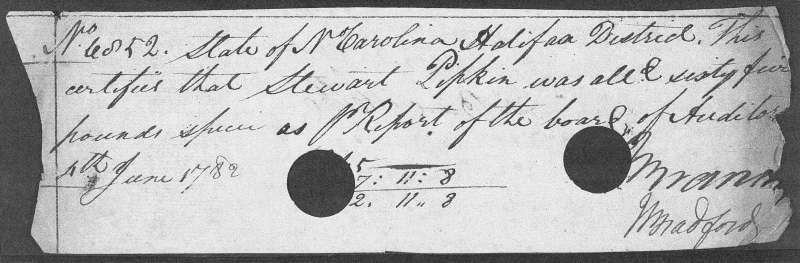 No. 6852. State of No Carolina Halifax District. This
certifies that Stewart Pipkin was alld. sixty five
pounds specie as Pr Report of the board of Auditors
4th June 1782
65
7: 11: 8
2. 11,, 8
Branch
W Bradford